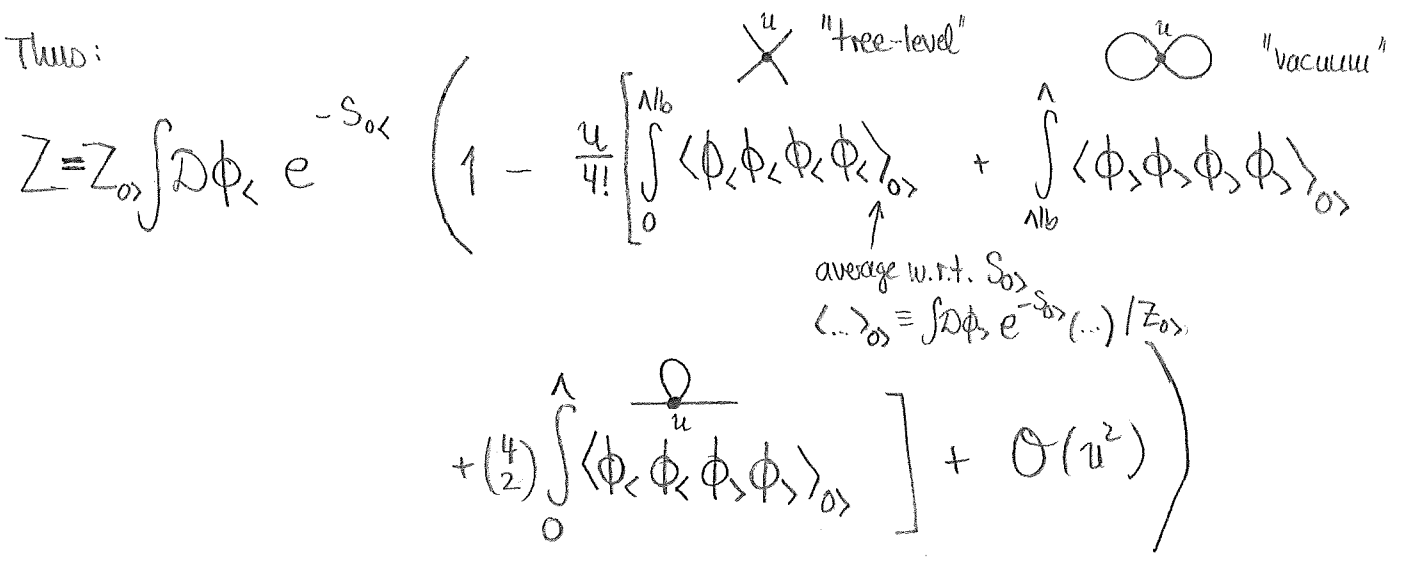 u "tree-level" u "vacuum"
Thus:
Z = Z₀> ∫ Dϕ< e^{-S₀<} ( 1 - u/4! [ ∫_0^{Λ/b} ⟨ϕ< ϕ< ϕ< ϕ<⟩₀> + ∫_{Λ/b}^{Λ} ⟨ϕ> ϕ> ϕ> ϕ>⟩₀>
average w.r.t. S₀>
⟨...⟩₀> ≡ ∫Dϕ> e^{-S₀>} (...) / Z₀>
u
+ (4 2) ∫_0^{Λ} ⟨ϕ< ϕ< ϕ> ϕ>⟩₀> ] + O(u²) )